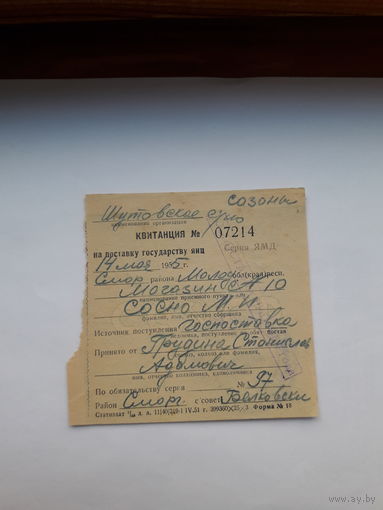 Сазоны
Шутовское с/по
наименование организации
КВИТАНЦИЯ № 07214
на поставку государству яиц Серия ЯМД
14 мая 1955 г.
Смор района Молод обл.(края)респ.
Магазин № 10
наименование приемного пункта
Сосно М.И.
фамилия, имя, отчество сборщика
Источник поступления Госпоставка
Принято от Грудина Станислав
колхоз или фамилия,
Адамович
имя, отчество колхозника, единоличника
По обязательству серия № 97
Район Сморг. с/совет
Форма № 18
ay.by